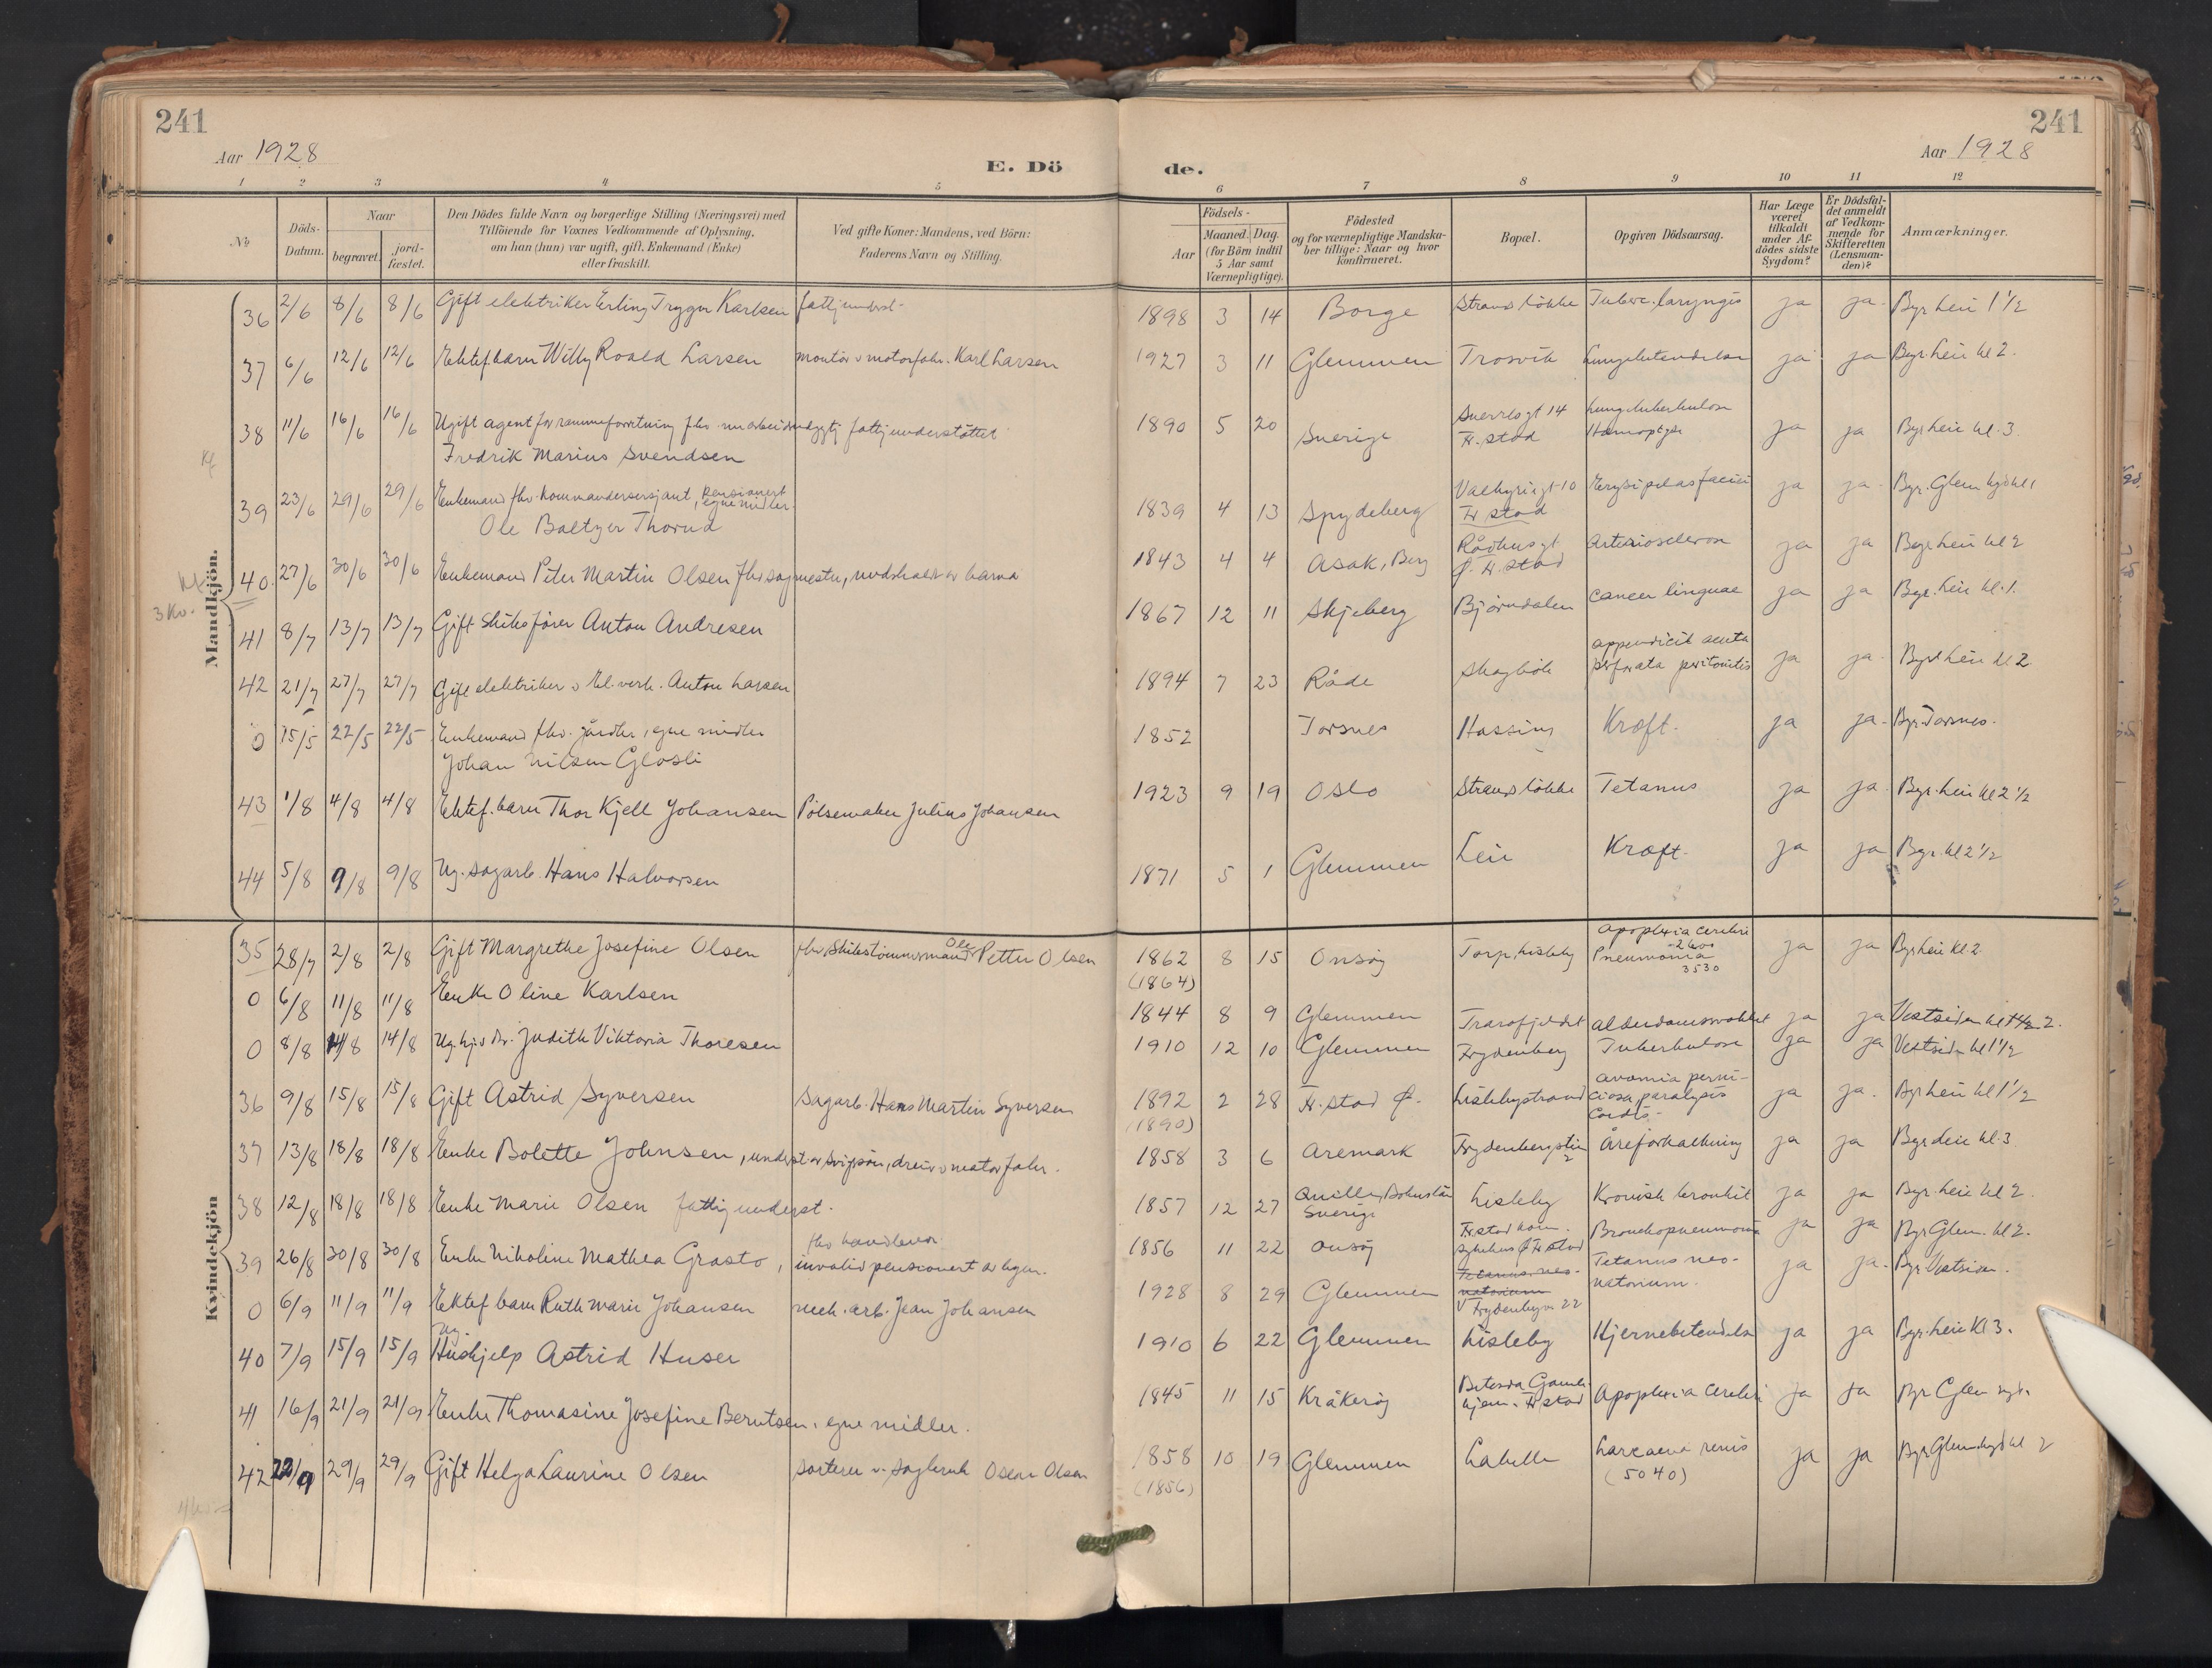 241
241
Aar 1928
E. Dö
de.
Aar 1928
1 2 3 4 5 6 7 8 9 10 11 12
No
Döds-Datum.
Naar
begravet.
jord-fæstet.
Den Dödes fulde Navn og borgerlige Stilling (Næringsvei) med
Tilföiende for Voxnes Vedkommende af Oplysning,
om han (hun) var ugift, gift, Enkemand (Enke)
eller fraskilt.
Ved gifte Koner: Mandens, ved Börn:
Faderens Navn og Stilling.
Födsels-
Aar
Maaned. Dag.
(for Börn indtil
5 Aar samt
Værnepligtige).
Födested
og for værnepligtige Mandska-
ber tillige: Naar og hvor
konfirmeret.
Bopæl.
Opgiven Dödsaarsag.
Har Læge
været
tilkaldt
under Af-
dödes sidste
Sygdom?
Er Dödsfal-
det anmeldt
af Vedkom-
mende for
Skifteretten
(Lensman-
den)?
Anmærkninger.
Mandkjön.
36 2/6 8/6 8/6 Gift elektriker Erling Trygve Karlsen fattigunderst. 1898 3 14 Borge Strandløkke Tuberc. laryngis ja ja Byr Leie 1 1/2
37 6/6 12/6 12/6 Ektef. barn Willy Roald Larsen montør v motorfabr. Karl Larsen 1927 3 11 Glemmen Trosvik Lungebetendelse ja ja Byr. Leie kl 2.
38 11/6 16/6 16/6 Ugift agent for rammeforretning fhv. nu arbeidsudygtig fattigunderstøttet
Fredrik Marius Svendsen
1890 5 20 Sverige gt 14
Fr. stad
Lungetuberkulose
Hæmoptyse
ja ja Byr Leie kl. 3.
39 23/6 29/6 29/6 Enkemand fhv. kommandersersjant, pensionert
egne midler.
Ole Baltzer Thorud
1839 4 13 Spydeberg Valkyrigt 10
Fr stad
Erysipelas faciei ja ja Byr. Glem kl 1
3 Kv.
40. 27/6 30/6 30/6 Enkemand Peter Martin Olsen fhv sagmester, underholdt av barna 1843 4 4 Asak, Berg Rådhusgt
Ø. Fr. stad
Arteriosclerose ja ja Byr Leie kl 2
41 8/7 13/7 13/7 Gift Skibsfører Anton Andresen 1867 12 11 Skjeberg Bjørndalen cancer linguae ja ja Byr. Leie kl. 1.
42 21/7 27/7 27/7 Gift elektriker v El. verk. Anton Larsen 1894 7 23 Råde Skogbøle appendicit acuta
perforata peritonitis
ja ja Byr Leie kl 2
0 15/5 22/5 22/5 Enkemand fhv. gårdbr, egne midler
Johan Nilsen Glosli
1852 Torsnes Hassing Kræft. ja ja Byr. Torsnes.
43 1/8 4/8 4/8 Ektef. barn Thor Kjell Johansen Pølsemaker Julius Johansen 1923 9 19 Oslo Strandløkke Tetanus ja ja Byr. Leie kl 2 1/2
44 5/8 9/8 9/8 Ug. sagarb. Hans Halvorsen 1871 5 1 Glemmen Leie Kræft. ja ja Byr. kl 2 1/2
Kvindekjön
35 28/7 2/8 2/8 Gift Margrethe Josefine Olsen fhv Skibstømmermand Ole Petter Olsen 1862
(1864)
8 15 Onsøy Torp, Lisleby Apoplexia cerebri
2600
Pneumonia
3530
ja ja Byr Leie kl. 2
0 6/8 11/8 11/8 Enke Oline Karlsen 1844 8 9 Glemmen Trarafjeldet alderdomssvakhet ja ja Vestsiden kl 2.
0 8/8 14/8 14/8 Ug. Judith Viktoria Thoresen 1910 12 10 Glemmen Frydenberg Tuberkulose ja ja Vestsiden kl 1 1/2
36 9/8 15/8 15/8 Gift Astrid Syversen Sagarb. Hans Martin Syversen 1892
(1890)
2 28 Fr. stad Ø. Lislebystrand anæmia perni-
ciosa, paralysis
cordis
ja ja. Byr Leie kl 1 1/2
37 13/8 18/8 18/8 Enke Bolette Johnsen, underst av svigersøn, dreier v motorfabr. 1858 3 6 Aremark Frydenbergstien
2
Åreforkalkning ja ja Byr Leie kl. 3
38 12/8 18/8 18/8 Enke Marie Olsen fattigunderst. 1857 12 27 Quille, Bohuslän
Sverige
Lisleby Kronisk bronkit ja ja Byr. Leie kl 2.
39 26/8 30/8 30/8 Enke Nikoline Mathea Grosto, fhv
invalidpensionert av byen. 1856 11 22 Onsøy Fr. stad kom.
sykehus Ø Fr stad
Bronchopneumoni ja ja Byr Glem. kl 2.
0 6/9 11/9 11/9 Ektef barn Ruth Marie Johansen mek. arb. Jean Johansen 1928 8 29 Glemmen Tetanus neo-
natorium
V Frydenbgvn 22
Tetanus neo-
natorium.
ja ja. Byr. Vestsiden.
40 7/9 15/9 15/9 Ug.
Hushjelp Astrid Huser 1910 6 22 Glemmen Lisleby Hjernebetendelse ja ja Byr. Leie kl 3.
41 16/9 21/9 21/9 Enke Thomasine Josefine Berntsen, egne midler. 1845 11 15 Kråkerøy Betesda Gamle-
hjem. Fr stad
Apoplexia cerebri ja ja Byr Glem
42 22/9 29/9 29/9 Gift Helga Laurine Olsen sorterer v. sagbruk Oscar Olsen 1858
(1856)
10 19 Glemmen Labelle renis
(5040)
ja ja Byr Glem kl 2